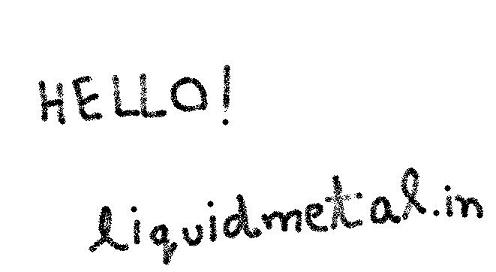 HELLO!
liquidmetal.in